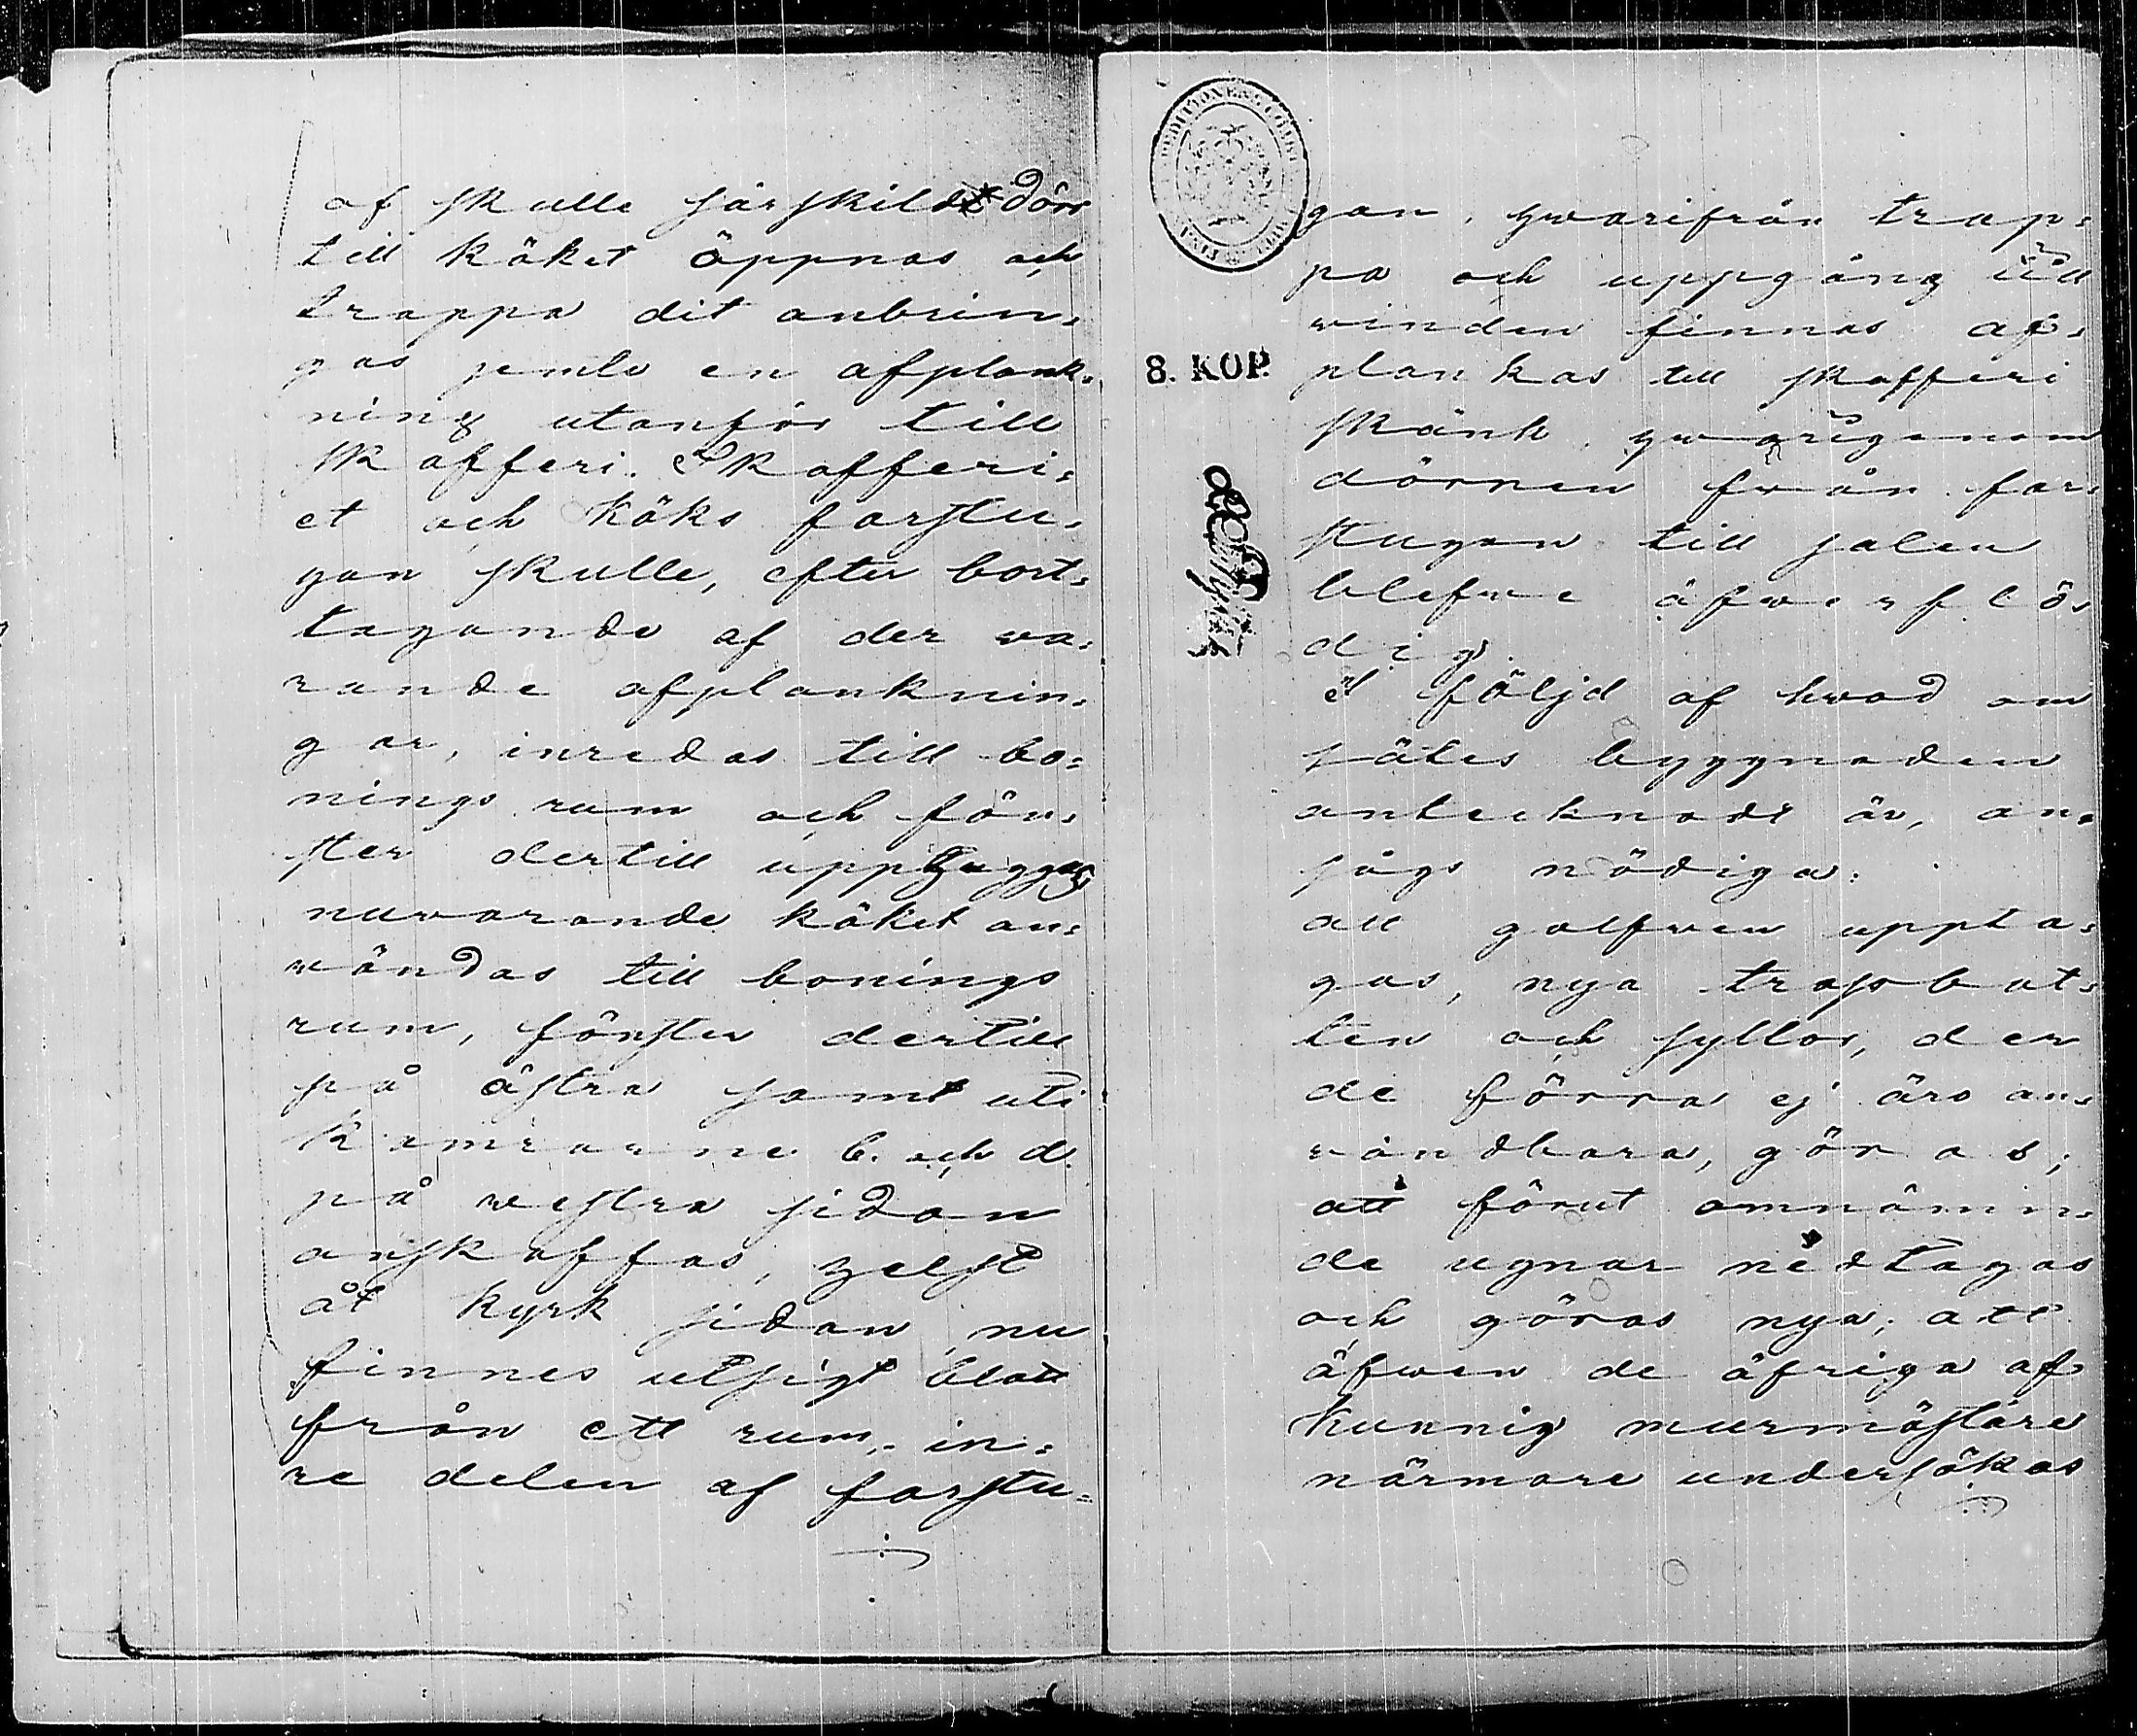 af skulle särskild dörr
till köket öppnas och
trappa dit anbrin=
gas jemte en afplank=
ning utanför till
skafferi. Skafferi=
et och köks farstu=
gan skulle, efter bort=
tagande af der va=
rande afplanknin=
gar, inredas till bo=
nings rum och fön=
ster dertill upphuggas
nuvarande köket an=
vändas till bonings
rum, fönster dertill
på östra samt uti
kamrarne b. och d.
på westra sidan
anskaffas, helst
åt kyrk sidan nu
finnes utsigt blott
från ett rum, in=
re delen af farstu=
gan, hvarifrån trap=
pa och uppgång till
vinden finnas af=
plankas till skafferi
skänk, hvarigenom
dörren från far=
stugan till salen
blefve öfverflö=
dig.
I följd af hvad om
sätes byggnaden
antecknadt är, an=
sågs nödiga:
att golfven uppta=
gas, nya trossbot=
ten och syllor, der
de förra ej äro an=
vändbara, göras;
att förut omnämn=
de ugnar nedtagas
och göras nya; att
äfven de öfriga af
kunnig murmästare
närmare undersökas
8. KOP.